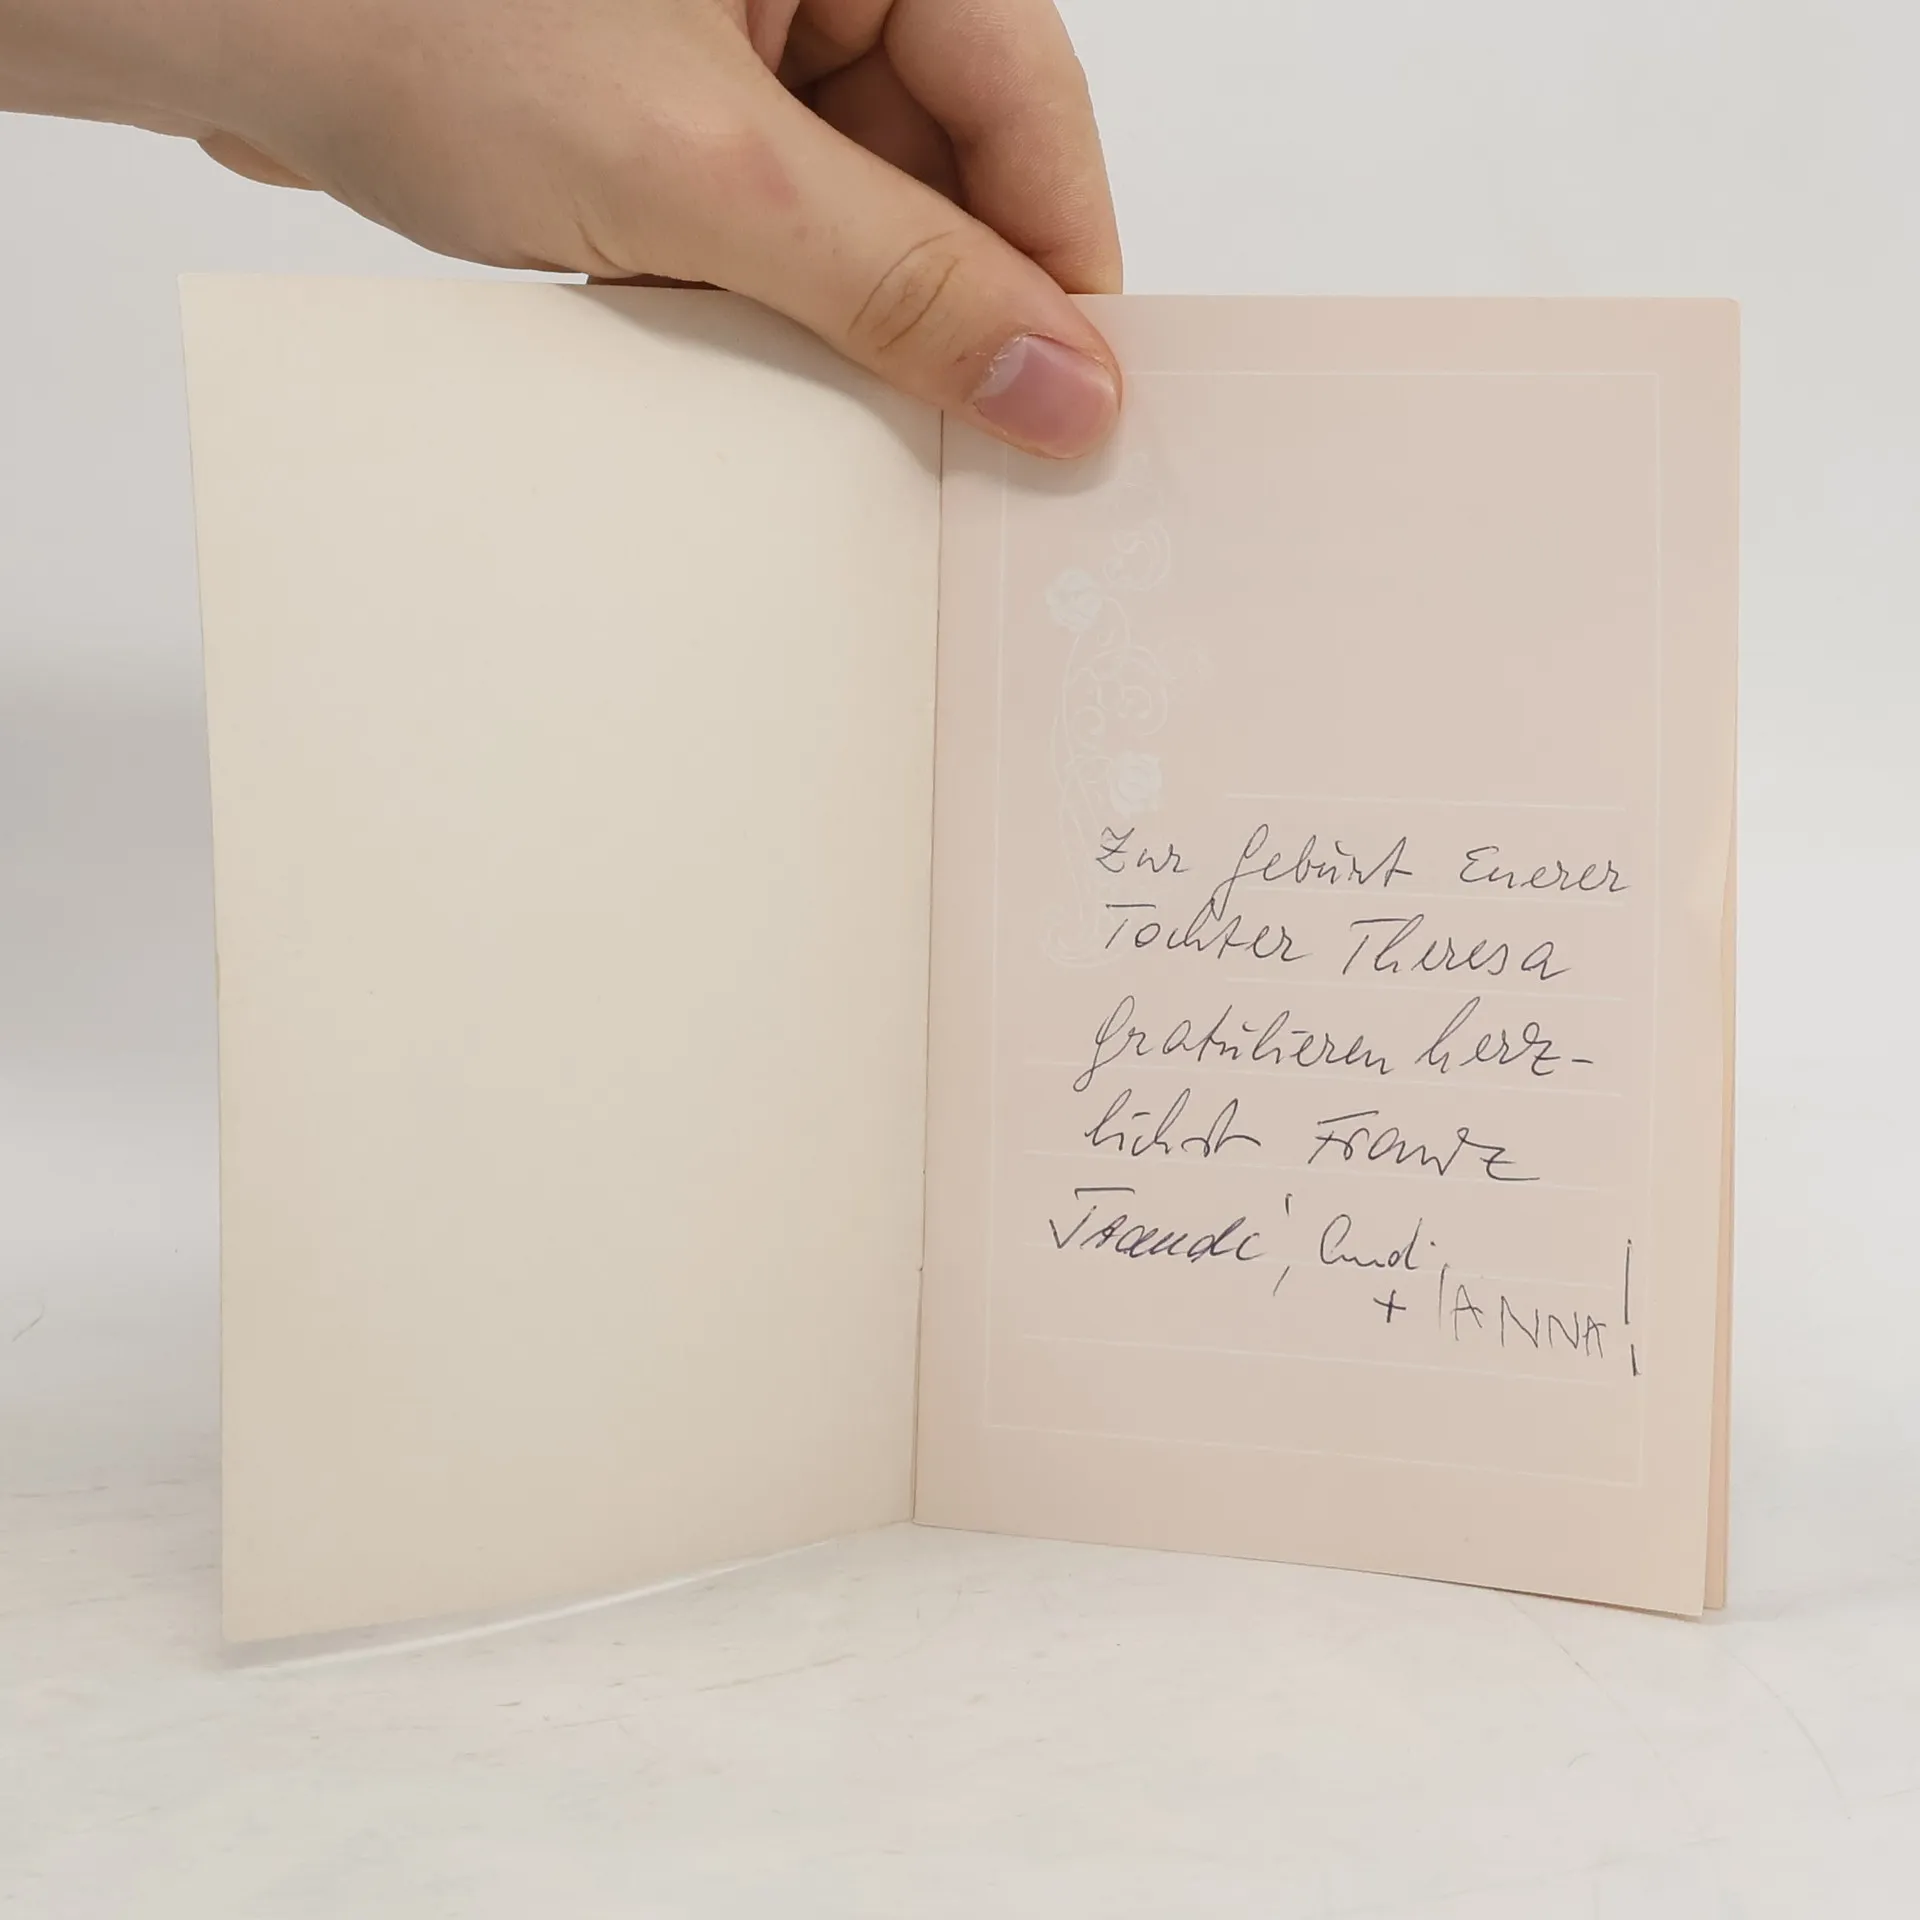 Zur Geburt Euerer
Tochter Theresa
gratulieren herz-
lichst Franz
Traudi,
+ ANNA!